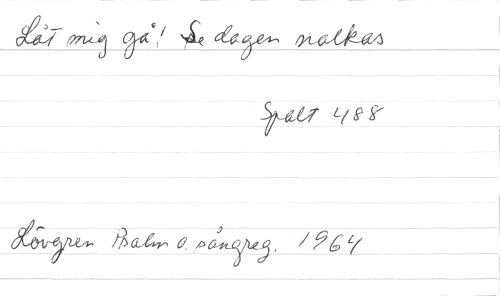 Låt mig gå! Se dagen nalkas
Spalt 488
Lövgren Psalm o. sångreg. 1964